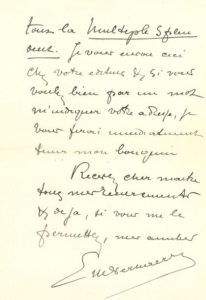 la Multiple Splen
deur. Je vous envoie ceci
chez votre editeur & si vous
voulez bien par un mot
m'indiquer votre adresse, je
vous ferai immediatement
tenir mon bouquin
Recevez cher maitre
tous mes remerciements
& deja, si vous me le
permettez, mes amities
Em Verhaeren